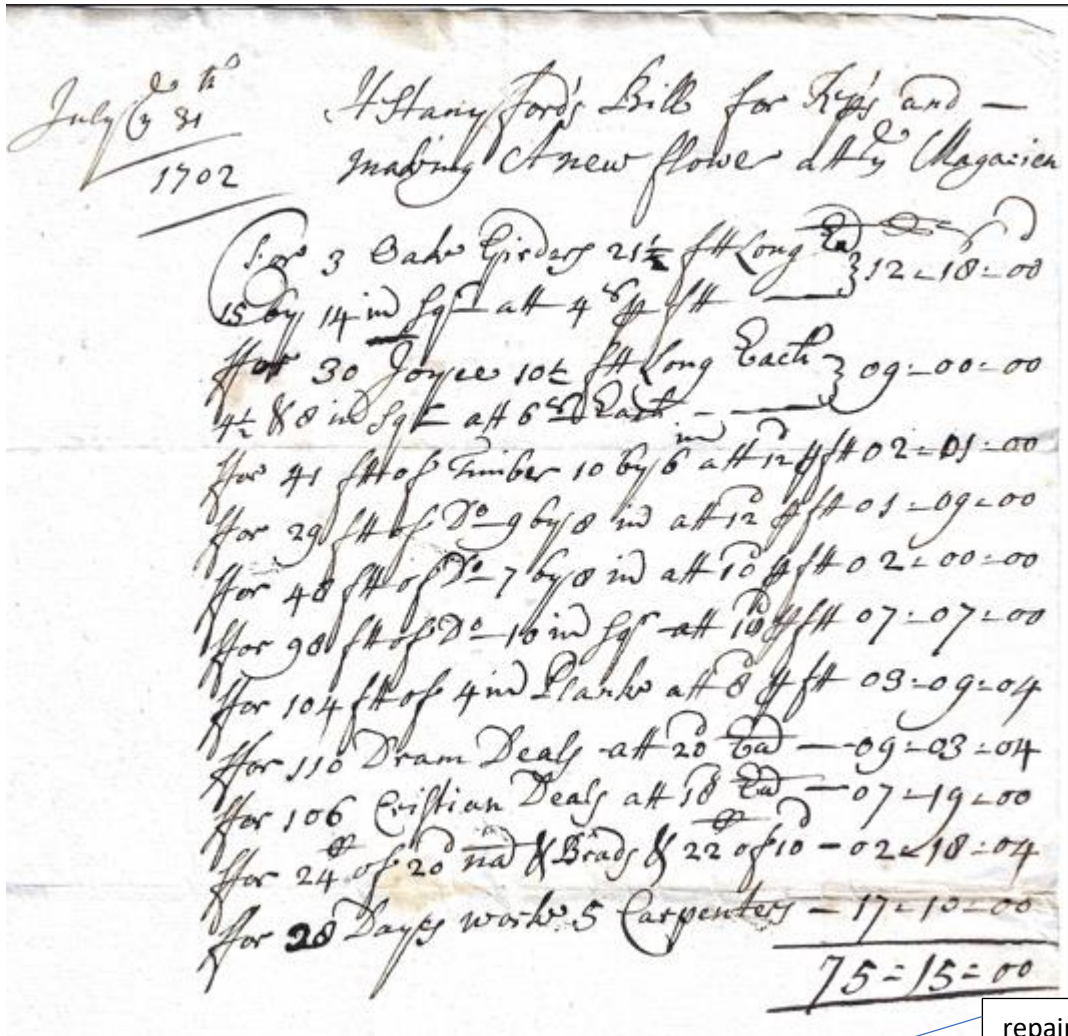 July ye 31th
1702
H Stanyford's Bill for Rep's and —
making A new flower att ye Magazien
For 3 Oake Girders 21½ ft Long Ea } 12=18=00
15 by 14 in Sqr att 4s ⅌ ft
ffor 30 Joyce 10½ ft Long Each } 09=00=00
4½ & 8 in Sqr att 6s Each
ffor 41 ft of Timber 10 by 6 in att 12d ⅌ ft 02=01=00
ffor 29 ft of Do 9 by 8 in att 12d ⅌ ft 01=09=00
ffor 48 ft of Do 7 by 8 in att 10d ⅌ ft 02=00=00
ffor 98 ft of Do 10 in Sqr att 18d ⅌ ft 07=07=00
ffor 104 ft of 4 in Planke att 8d ⅌ ft 03=09=04
ffor 110 Dram Deals att 20d Ea — 09=03=04
ffor 106 Cristian Deals att 18d Ea — 07=19=00
ffor 24 of 20d & Brads & 22 of 10d — 02=18=04
ffor 28 Days worke 5 Carpenters — 17=10=00
75=15=00
repair